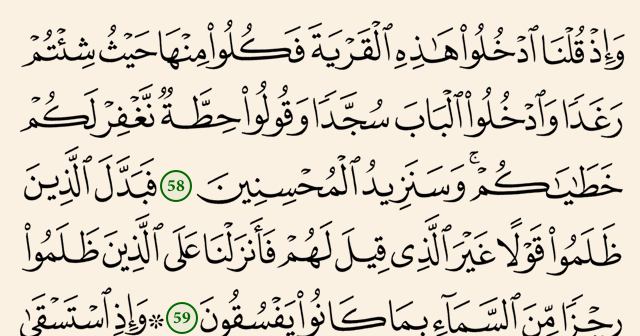 وَإِذۡ قُلۡنَا ٱدۡخُلُواْ هَٰذِهِ ٱلۡقَرۡيَةَ فَكُلُواْ مِنۡهَا حَيۡثُ شِئۡتُمۡ
رَغَدٗا وَٱدۡخُلُواْ ٱلۡبَابَ سُجَّدٗا وَقُولُواْ حِطَّةٞ نَّغۡفِرۡ لَكُمۡ
خَطَٰيَٰكُمۡۚ وَسَنَزِيدُ ٱلۡمُحۡسِنِينَ 58 فَبَدَّلَ ٱلَّذِينَ
ظَلَمُواْ قَوۡلًا غَيۡرَ ٱلَّذِي قِيلَ لَهُمۡ فَأَنزَلۡنَا عَلَى ٱلَّذِينَ ظَلَمُواْ
رِجۡزٗا مِّنَ ٱلسَّمَآءِ بِمَا كَانُواْ يَفۡسُقُونَ 59 ۞ وَإِذِ ٱسۡتَسۡقَىٰ